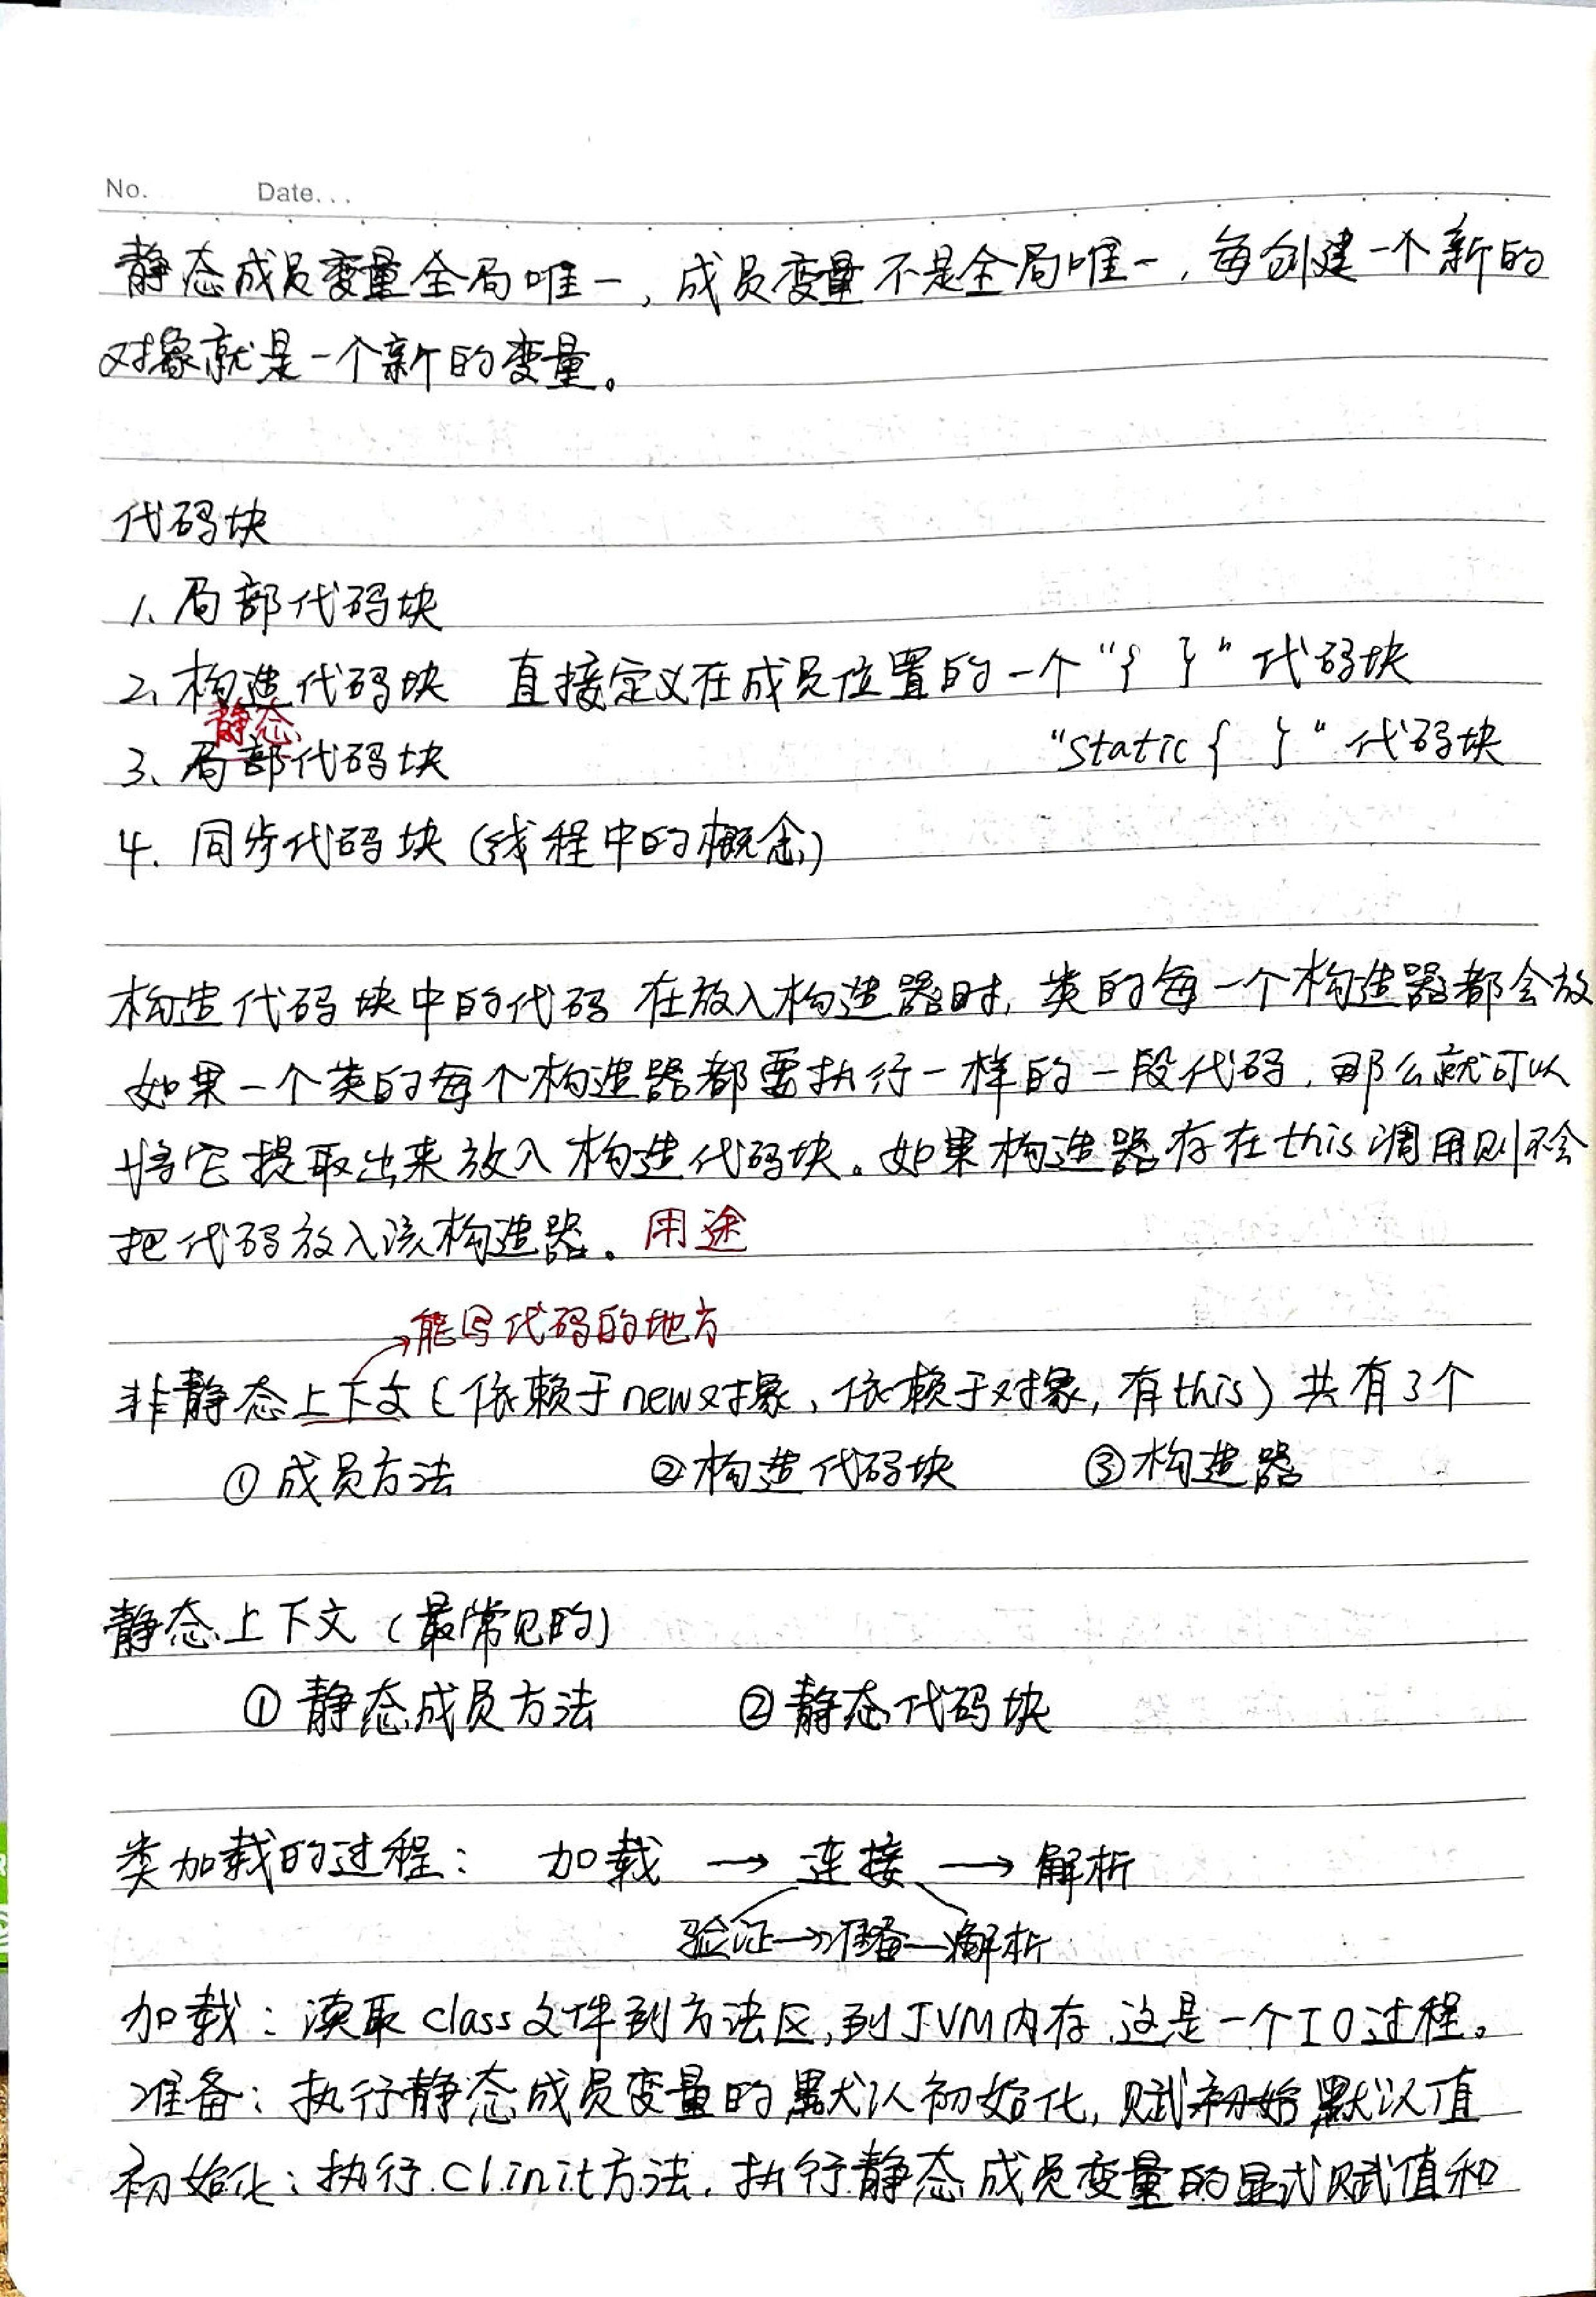 No. Date...
静态成员变量全局唯一，成员变量不是全局唯一，每创建一个新的
对象就是一个新的变量。
代码块
1、局部代码块
2、构造代码块 直接定义在成员位置的一个“{ }”代码块
静态
3、局部代码块 “static{ }”代码块
4. 同步代码块(线程中的概念)
构造代码块中的代码在放入构造器时，类的每一个构造器都会放
如果一个类的每个构造器都要执行一样的一段代码，那么就可以
将它提取出来放入构造代码块。如果构造器存在this调用则不会
把代码放入该构造器。用途
能写代码的地方
非静态上下文(依赖于new对象、依赖于对象，有this)共有3个
①成员方法 ②构造代码块 ③构造器
静态上下文(最常见的)
①静态成员方法 ②静态代码块
类加载的过程： 加载 → 连接 → 解析
验证→准备→解析
加载：读取class文件到方法区，到JVM内存，这是一个IO过程。
准备：执行静态成员变量的默认初始化，赋初始默认值
初始化：执行clinit方法，执行静态成员变量的显式赋值和